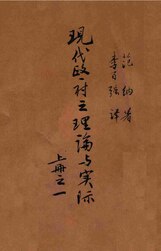 范纳著
李百强译
现代政府之理論与实际
上册之一